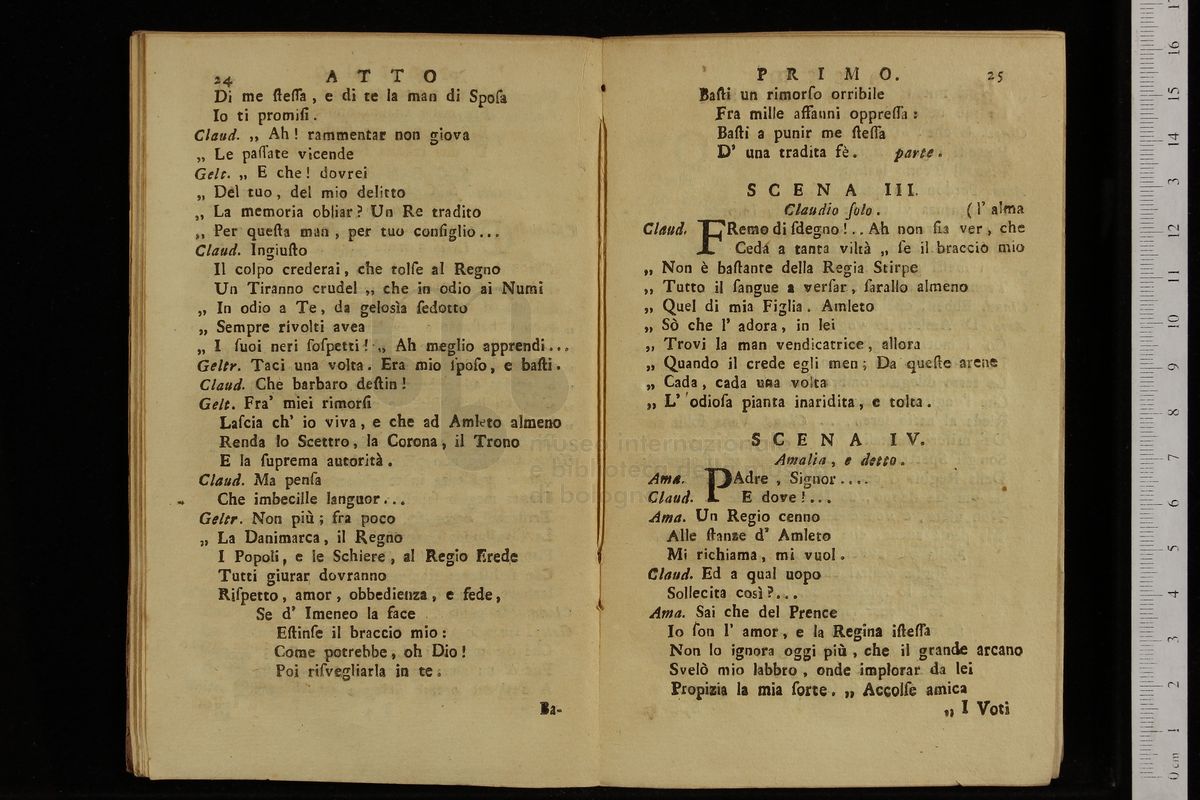 24 A T T O
Di me ſteſſa , e di te la man di Spoſa
Io ti promiſi .
Claud. „ Ah ! rammentar non giova
„ Le paſſate vicende
Gelt. „ E che ! dovrei
„ Del tuo , del mio delitto
„ La memoria obliar ? Un Re tradito
„ Per queſta man , per tuo conſiglio...
Claud. Ingiuſto
Il colpo crederai , che tolſe al Regno
Un Tiranno crudel „ che in odio ai Numi
„ In odio a Te , da gelosìa ſedotto
„ Sempre rivolti avea
„ I ſuoi neri ſoſpetti ! „ Ah meglio apprendi...
Geltr. Taci una volta . Era mio ſpoſo , e baſti .
Claud. Che barbaro deſtin !
Gelt. Fra' miei rimorſi
Laſcia ch' io viva , e che ad Amleto almeno
Renda lo Scettro , la Corona , il Trono
E la ſuprema autorità .
Claud. Ma penſa
Che imbecille languor...
Geltr. Non più ; fra poco
„ La Danimarca , il Regno
I Popoli , e le Schiere , al Regio Erede
Tutti giurar dovranno
Riſpetto , amor , obbedienza , e fede ,
Se d' Imeneo la face
Eſtinſe il braccio mio :
Come potrebbe , oh Dio !
Poi riſvegliarla in te .
Ba-
P R I M O. 25
Baſti un rimorſo orribile
Fra mille affanni oppreſſa :
Baſti a punir me ſteſſa
D' una tradita fè . parte .
S C E N A III.
Claudio ſolo . ( l' alma
Claud. FRemo di ſdegno !.. Ah non ſia ver , che
Ceda a tanta viltà „ ſe il braccio mio
„ Non è baſtante della Regia Stirpe
„ Tutto il ſangue a verſar , farallo almeno
„ Quel di mia Figlia . Amleto
„ Sò che l' adora , in lei
„ Trovi la man vendicatrice , allora
„ Quando il crede egli men ; Da queſte arene
„ Cada , cada una volta
„ L' odioſa pianta inaridita , e tolta .
S C E N A IV.
Amalia , e detto .
Ama. PAdre , Signor ....
Claud. E dove !...
Ama. Un Regio cenno
Alle ſtanze d' Amleto
Mi richiama , mi vuol .
Claud. Ed a qual uopo
Sollecita così ?...
Ama. Sai che del Prence
Io ſon l' amor , e la Regina iſteſſa
Non lo ignora oggi più , che il grande arcano
Svelò mio labbro , onde implorar da lei
Propizia la mia ſorte . „ Accolſe amica
„ I Voti
museo internazionale
e biblioteca della musica
di bologna
0 cm 1 2 3 4 5 6 7 8 9 10 11 12 13 14 15 16 17